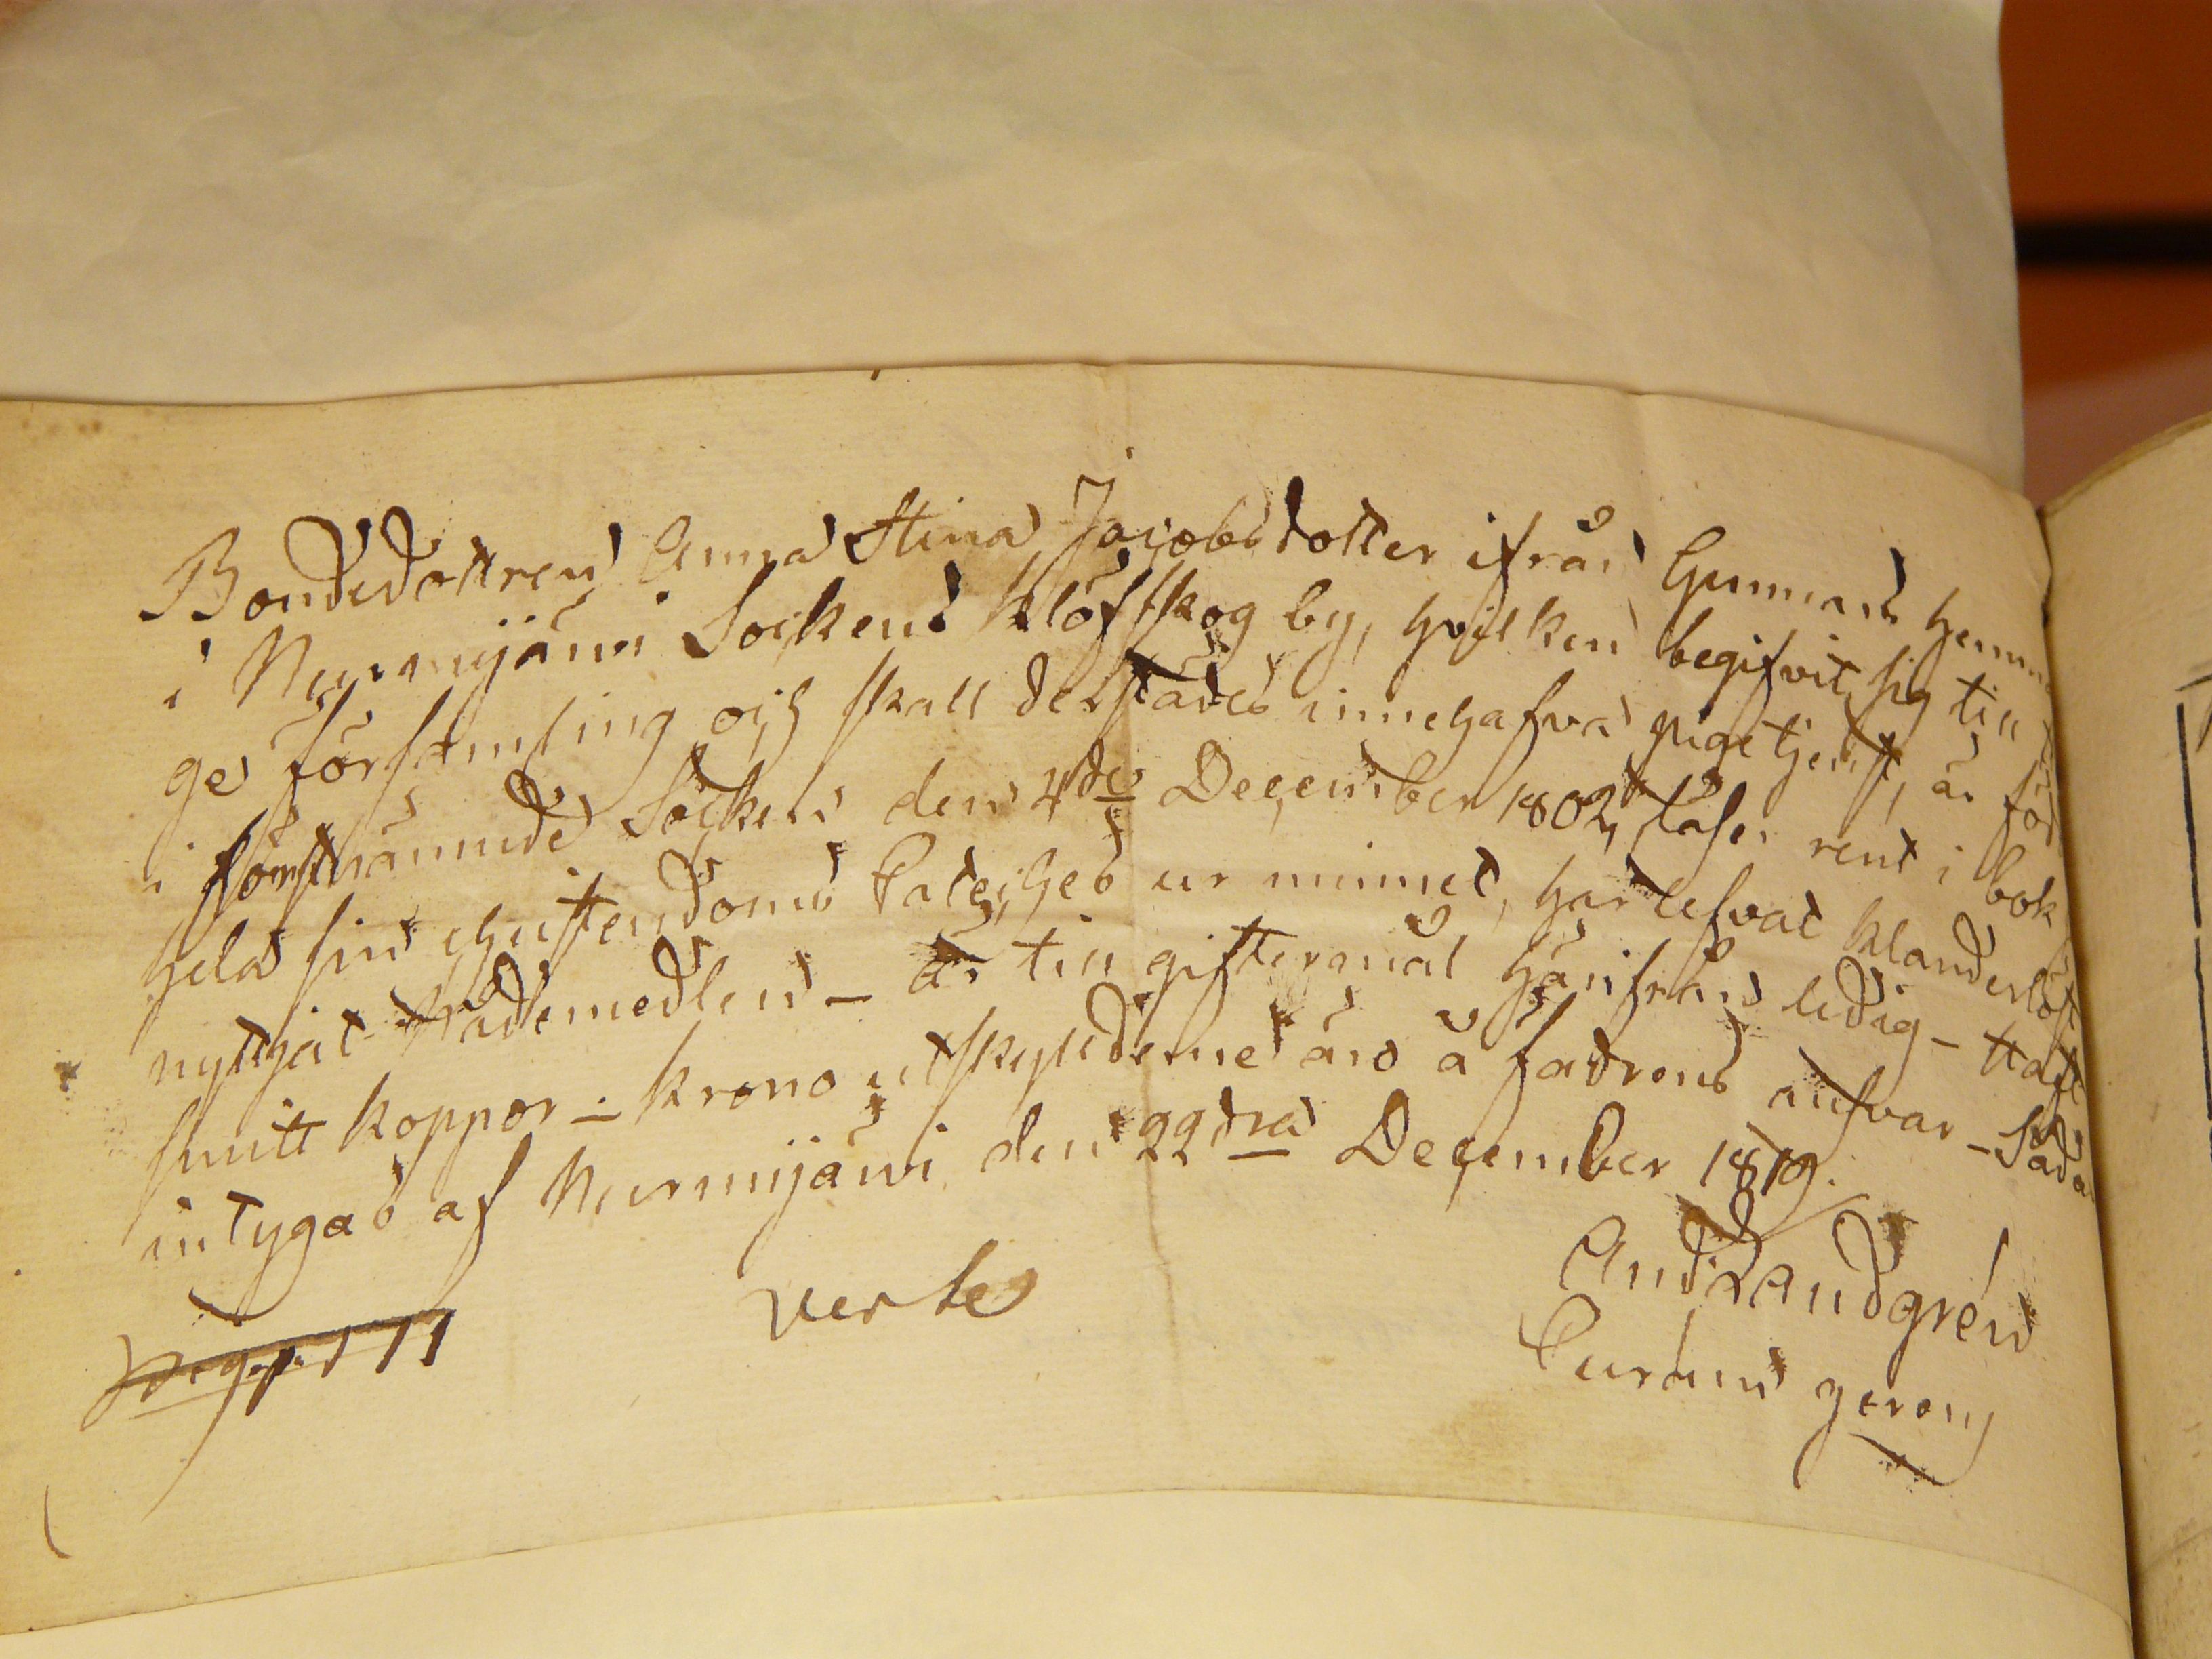 Bondedottren Anna Stina Jacobsdotter ifrån Gunnars hemm
i Nurmijärvi Sockens Klöfskog by, hvilken begifvit sig till
ge församling och skall derstädes innehafva pigetjenst, är föd
i förstnämnde Socken den 4de December 1802, läser rent i bok
hela sin christendoms Cateches ur minnet, har lefvat klanderlöst
nyttjat nådemedlen – är till giftermål härifrån ledig – haft
smitt koppor – krono utskylderne äro å fadrens ansvar – Såda
intygas af Nurmijärvi den 22dra December 1819.
And Landgrén
verte